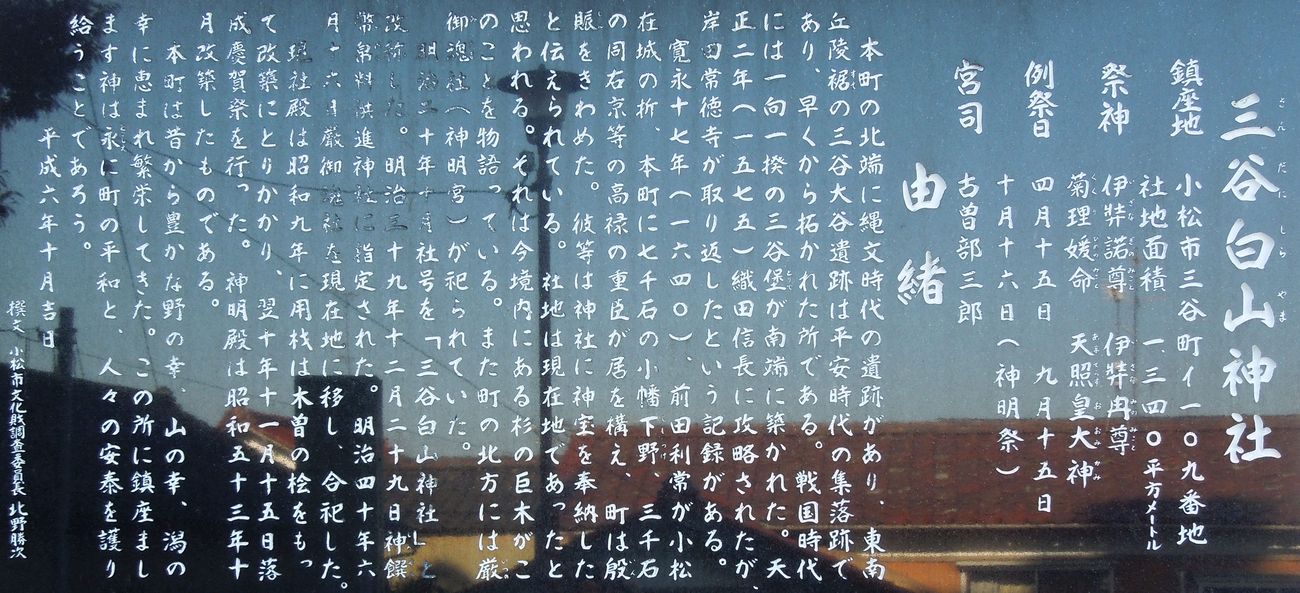 三谷白山神社
鎮座地 小松市三谷町イ一〇九番地
社地面積 一、三四〇平方メートル
祭神 伊弉諾尊 伊弉冉尊
菊理媛命 天照皇大神
例祭日 四月十五日 九月十五日
十月十六日(神明祭)
宮司 古曽部三郎
由緒
本町の北端に縄文時代の遺跡があり、東南
丘陵裾の三谷大谷遺跡は平安時代の集落跡で
あり、早くから拓かれた所である。戦国時代
には一向一揆の三谷堡が南端に築かれた。天
正二年(一五七五)織田信長に攻略されたが、
岸田常徳寺が取り返したという記録がある。
寛永十七年(一六四〇)、前田利常が小松
在城の折、本町に七千石の小幡下野、三千石
の同右京等の高禄の重臣が居を構え、町は殷
賑をきわめた。彼等は神社に神室を奉納した
と伝えられている。社地は現在地であったと
思われる。それは今境内にある杉の巨木がこ
のことを物語っている。また町の北方には厳
御魂社(神明宮)が祀られていた。
明治三十年十月社号を「三谷白山神社」と
改称した。明治三十九年十二月二十九日神饌
幣帛料供進神社に指定された。明治四十年六
月十六日厳御魂社を現在地に移し、合祀した。
現社殿は昭和九年に用材は木曽の桧をもっ
て改築にとりかかり、翌十年十一月十五日落
成慶賀祭を行った。神明殿は昭和五十三年十
月改築したものである。
本町は昔から豊かな野の幸、山の幸、潟の
幸に恵まれ繁栄してきた。この所に鎮座まし
ます神は永に町の平和と、人々の安泰を護り
給うことであろう。
平成六年十月吉日
撰文 小松市文化財調査委員長 北野勝次